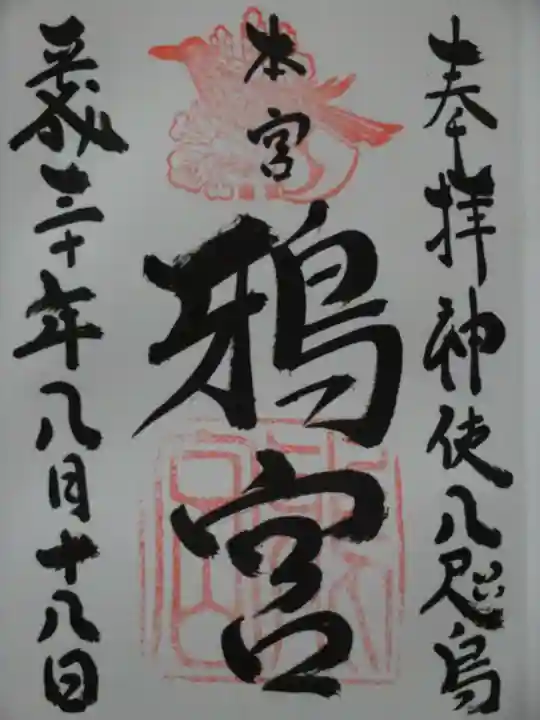 奉拝神使八咫烏
本宮
鴉宮
平成三十年八月十八日